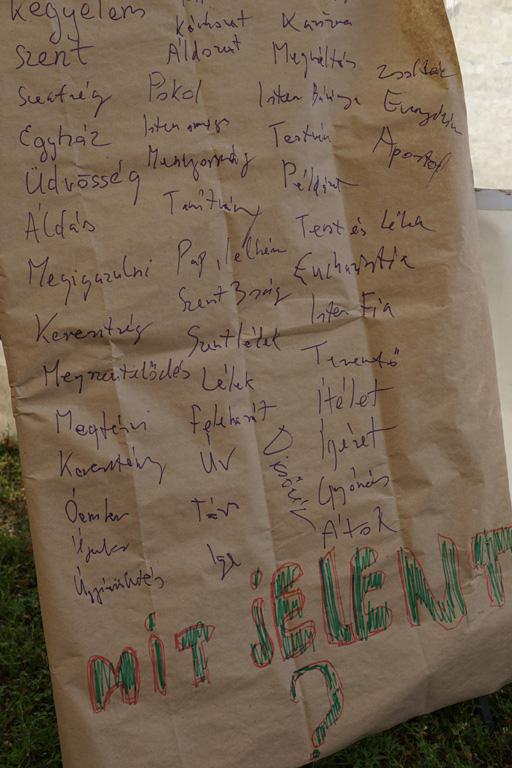 Kegyelem
Szent
Szentség
Egyház
Üdvösség
Áldás
Megigazulni
Keresztség
Megszentelődés
Megtérni
Keresztény
Óember
Újjászületés
Áldozat
Pokol
Mennyország
Tanítvány
Pap, lelkész
Szentlélek
Lélek
Feltámadt
Úr
Ige
Megváltás
Isten Báránya
Testvér
Test és lélek
Eucharisztia
Isten Fia
Teremtő
Ítélet
Ígéret
Gyónás
Átok
Dicsőség
Zsoltár
Evangélium
Apostol
MIT JELENT
?